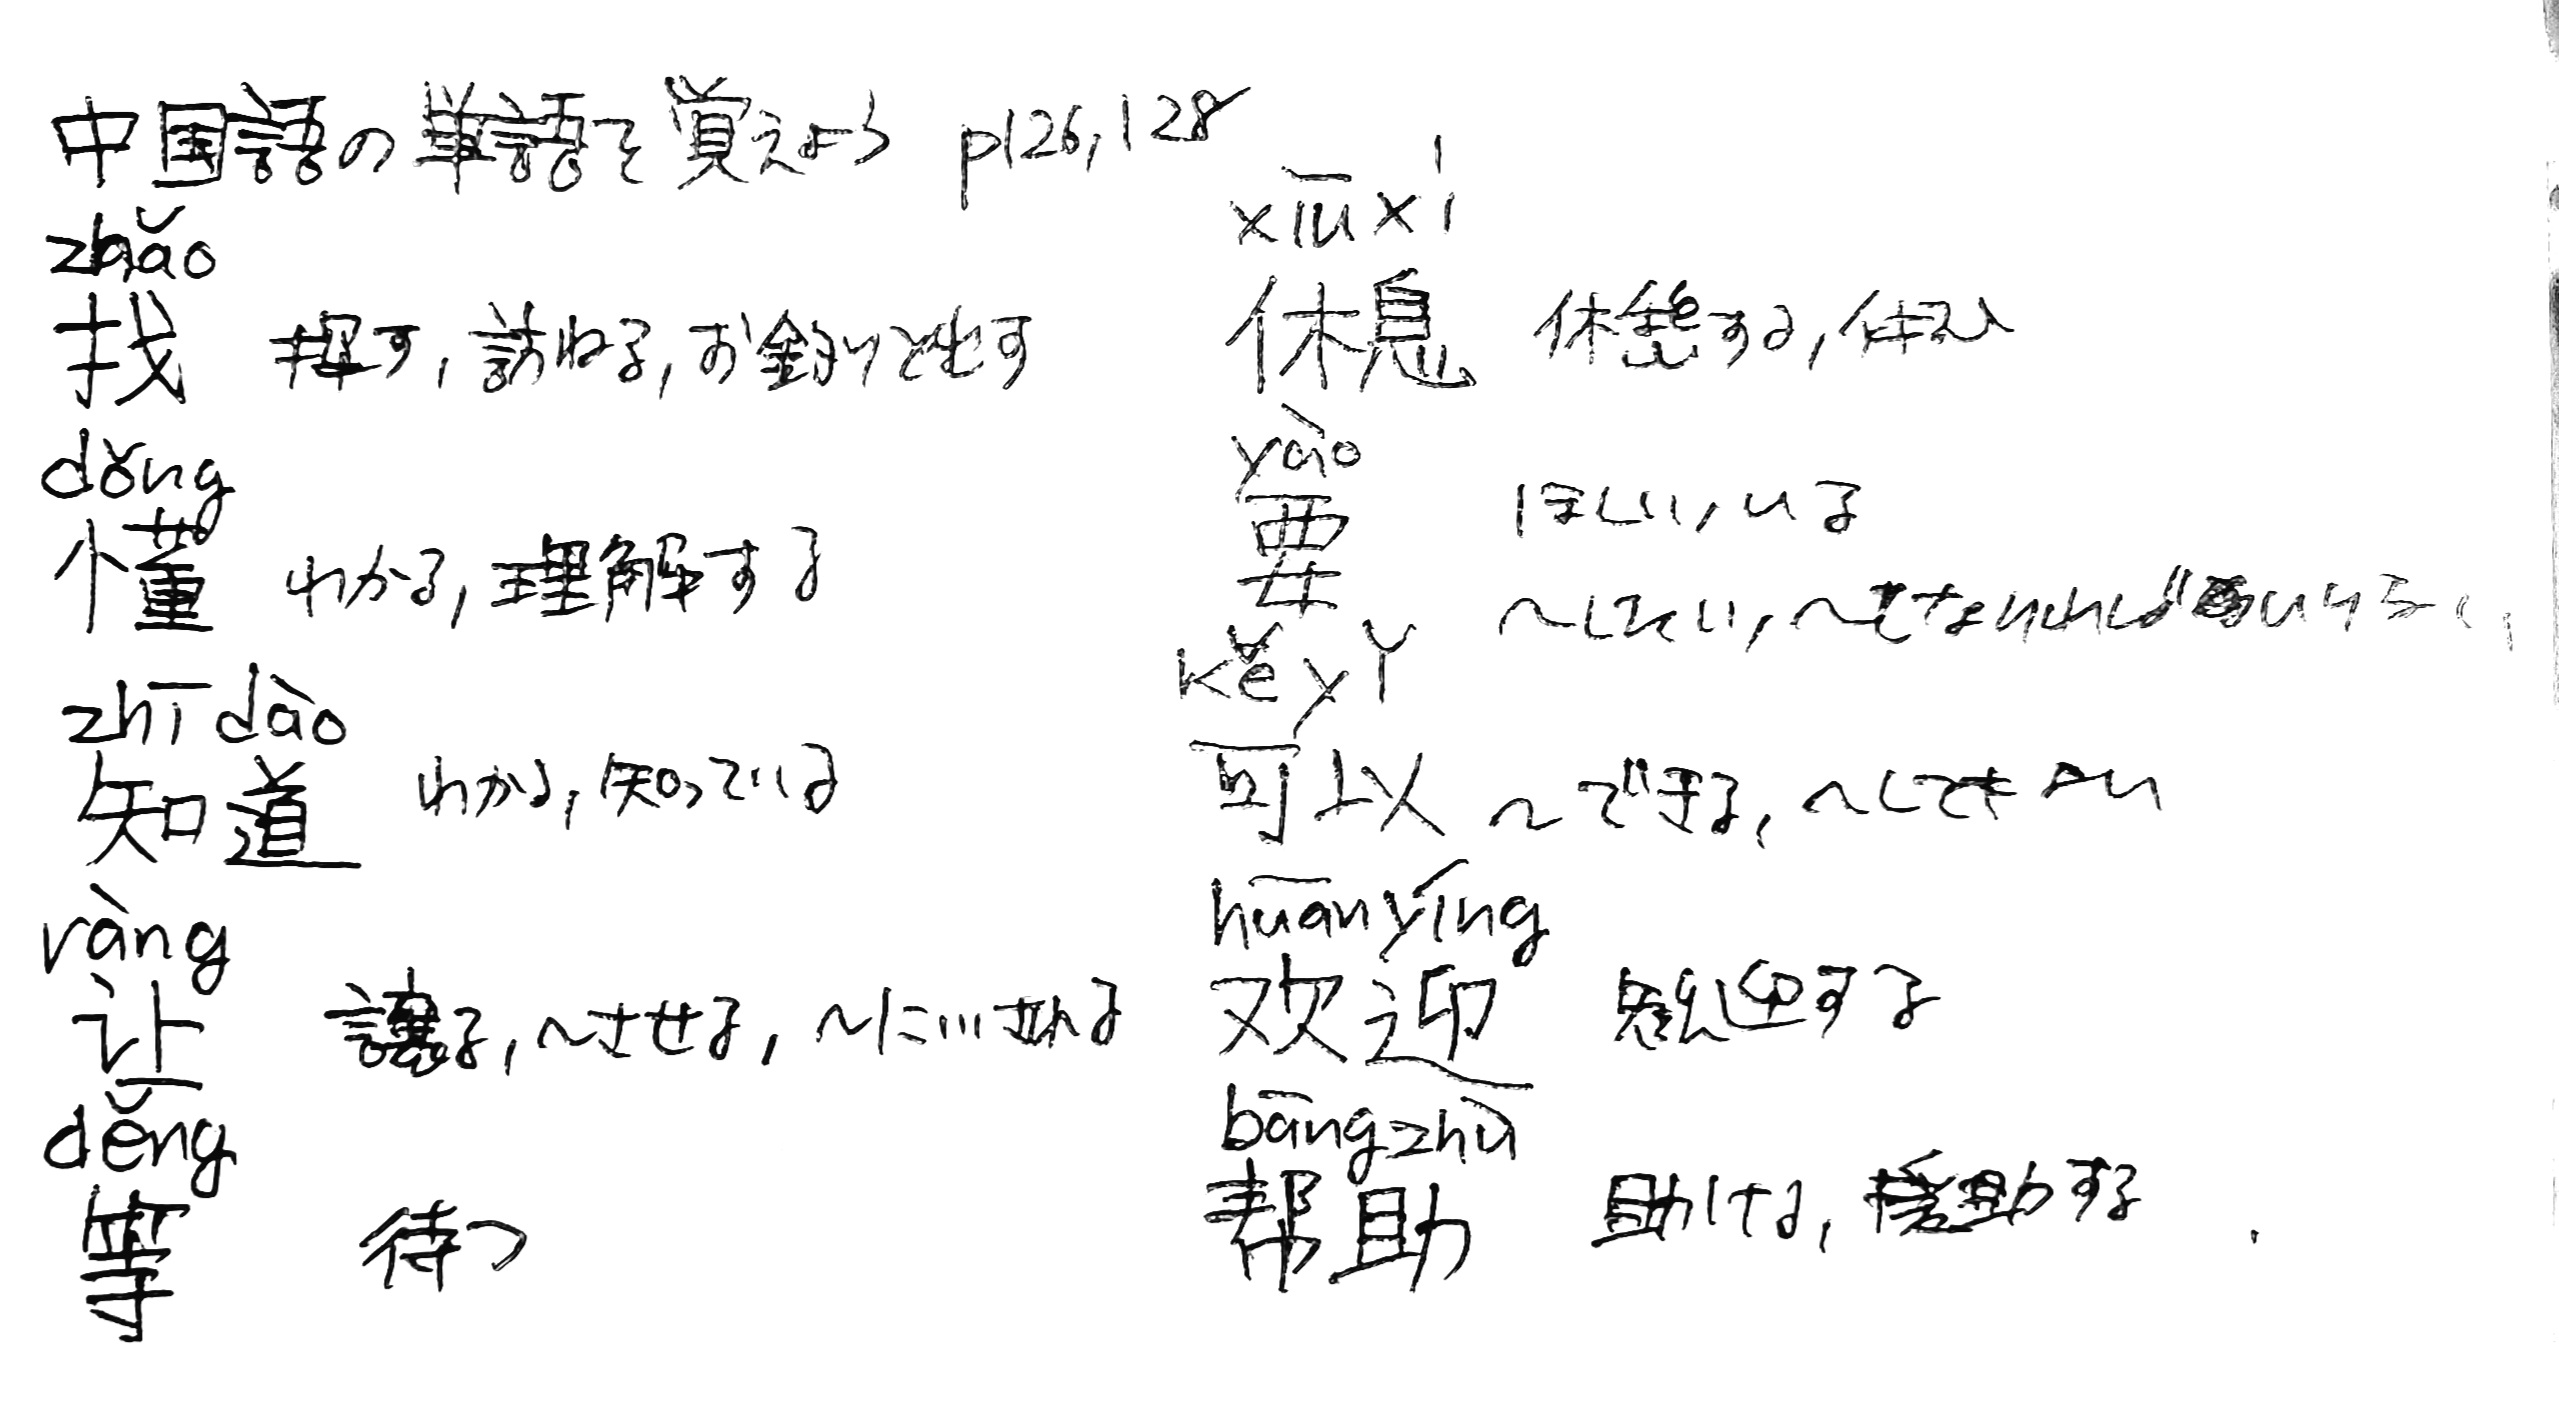 中国語の単語を覚えよう p126,128
zhǎo
找 探す,訪ねる,お釣りを出す
dǒng
懂 わかる,理解する
zhīdào
知道 わかる,知っている
ràng
让 譲る,〜させる,〜に…される
děng
等 待つ
xiūxi
休息 休憩する,休む
yào
要 ほしい,いる
〜したい,〜しなければいけない
kěyǐ
可以 〜できる,〜してもいい
huānyíng
欢迎 歓迎する
bāngzhù
帮助 助ける,援助する